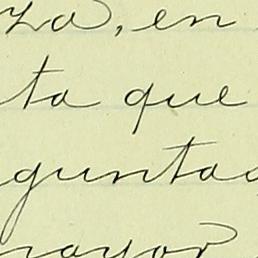 za, en
ta que
guntas
mayor